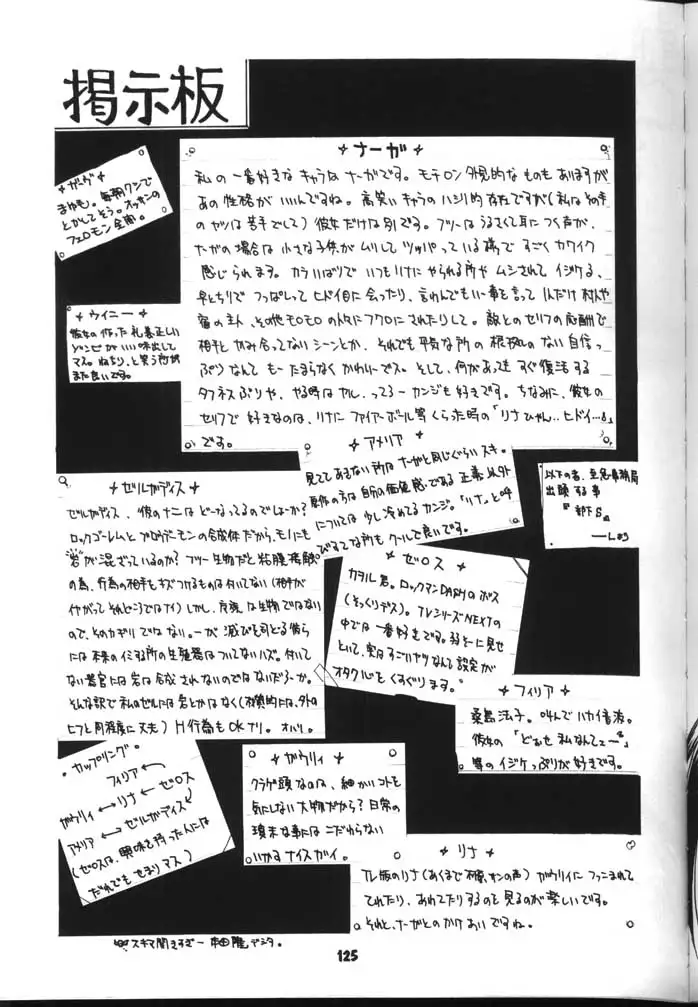 掲示板
ナーガ
私の一番好きなキャラはナーガです。モチロン外見的なものもありますが
あの性格がいいんですね。高笑いキャラのハシリ的存在ですが(私は
のヤツは苦手でして)彼女だけは別です。フツーはうるさくて耳につく声が、
ナーガの場合は小さな子供がムリしてツッパっている様ですごくカワイク
感じられます。カラいばりでいつもリナにやられる所やムシされてイジケる、
早とちりでつっぱしってヒドイ目に会ったり、言わんでもいー事を言って
宿の主人、その他モロモロの人々にフクロにされたりして。敵とのセリフの応酬で
相手とかみ合ってないシーンとか、それでも平気な所の根拠のない自信っ
ぷりなんてもーたまらなくかわいーでス。そして、何があってもすぐ復活する
タフネスぶりや、やる時はヤル、ってろーカンジも好きです。ちなみに、彼女の
セリフで好きなのは、リナにファイアーボール等くらった時の「リナひゃん…ヒドイ…」
です。
ガーヴ
まゆも。毎朝クシで
とかしてそう。オッサンの
フェロモン全開。
ウィニー
彼女の作った礼義正しい
ゾンビがいい味出して
マス。ねちり、と笑う所が
また良いです。
アメリア
見ててあきない所はナーガと同じぐらいスキ。
原作の方は自分の価値感である正義以外
については少し冷めてるカンジ。「リナ」と呼
びすてな所もクールで良いです。
以下の者、至急事務局
出頭する事
『部下S』
ーL様
ゼルガディス
ゼルガディス、彼のナニはどーなってるのでしょーか?
ロックゴーレムとブロウデーモンの合成体だから、モノにも
"岩"が混ざっているのか?フツー生物だと粘膜接触
の為、行為の相手をキズつけるものは付いてない(相手が
イヤがってそれどころではナイ)しかし、魔族は生物ではない
ので、そのカギリではない。が滅びを司どる彼ら
には本来のイミする所の生殖器はついてないハズ。付いて
ない器官には岩は合成されないのではないだろーか。
そんな訳で私のゼルには岩とかはなく(材質的には、外の
ヒフと同程度に丈夫)H行為もOKナリ。オワリ。
ゼロス
カヲル君。ロックマンDASHのボス
(そっくりデス)。TVシリーズNEXTの
中では一番好きです。弱そーに見せ
といて、実はすごいヤツなんて設定が
オタク心をくすぐります。
フィリア
桑島法子。叫んでハカイ音波。
彼女の「どぉせ私なんてェー」
等のイジケっぷりが好きです。
カップリング。
フィリア
ガウリィ リナ ゼロス
アメリア ゼルガディス
(ゼロスは、興味を持った人には
だれでもせまりマス)
ガウリィ
クラゲ頭なのは、細かいコトを
気にしない大物だから?日常の
瑣末な事にはこだわらない
いかすナイスガイ。
リナ
TV版のリナ(あくまで林原サンの声)ガウリイにファニまれて
てれたり、あわてたりするのを見るのが楽しいです。
それと、ナーガとのかけあいですね。
スキマ開きすぎー 本田隆デシタ。
125